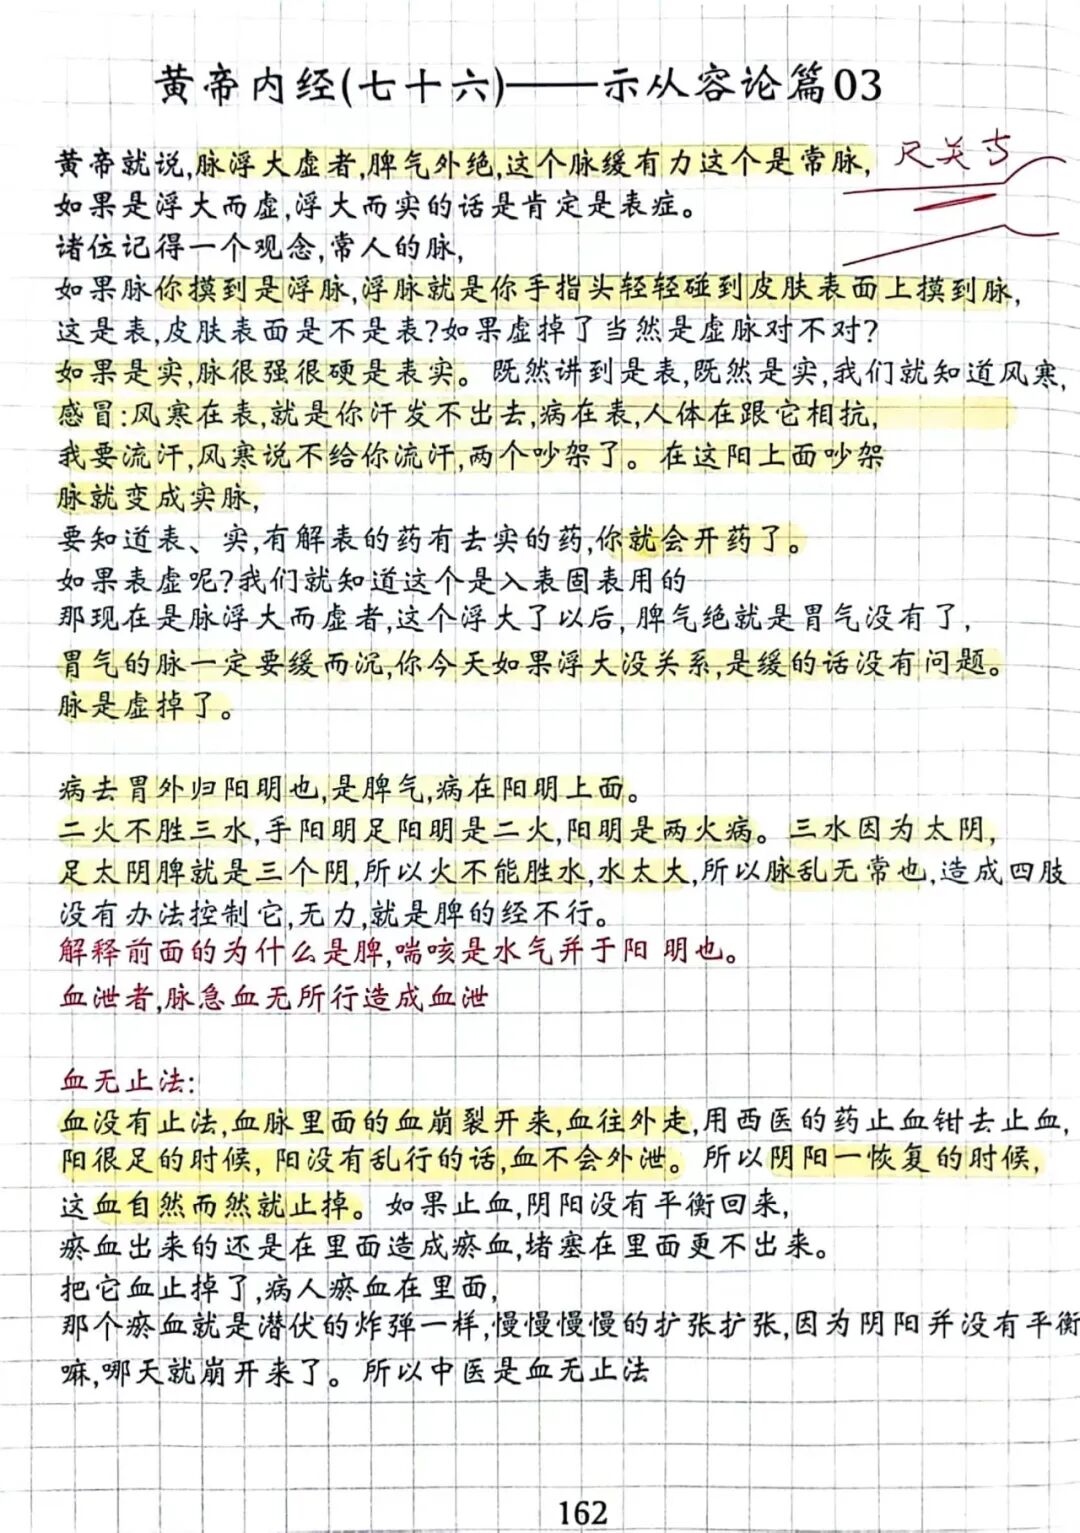 黄帝内经(七十六)——示从容论篇03
黄帝就说,脉浮大虚者,脾气外绝,这个脉缓有力这个是常脉,
尺关寸
如果是浮大而虚,浮大而实的话是肯定是表症。
诸位记得一个观念,常人的脉,
如果脉你摸到是浮脉,浮脉就是你手指头轻轻碰到皮肤表面上摸到脉,
这是表,皮肤表面是不是表?如果虚掉了当然是虚脉对不对?
如果是实,脉很强很硬是表实。既然讲到是表,既然是实,我们就知道风寒,
感冒:风寒在表,就是你汗发不出去,病在表,人体在跟它相抗,
我要流汗,风寒说不给你流汗,两个吵架了。在这阳上面吵架
脉就变成实脉,
要知道表、实,有解表的药有去实的药,你就会开药了。
如果表虚呢?我们就知道这个是入表固表用的
那现在是脉浮大而虚者,这个浮大了以后,脾气绝就是胃气没有了,
胃气的脉一定要缓而沉,你今天如果浮大没关系,是缓的话没有问题。
脉是虚掉了。
病去胃外归阳明也,是脾气,病在阳明上面。
二火不胜三水,手阳明足阳明是二火,阳明是两火病。三水因为太阴,
足太阴脾就是三个阴,所以火不能胜水,水太大,所以脉乱无常也,造成四肢
没有办法控制它,无力,就是脾的经不行。
解释前面的为什么是脾,喘咳是水气并于阳 明也。
血泄者,脉急血无所行造成血泄
血无止法:
血没有止法,血脉里面的血崩裂开来,血往外走,用西医的药止血钳去止血,
阳很足的时候,阳没有乱行的话,血不会外泄。所以阴阳一恢复的时候,
这血自然而然就止掉。如果止血,阴阳没有平衡回来,
瘀血出来的还是在里面造成瘀血,堵塞在里面更不出来。
把它血止掉了,病人瘀血在里面,
那个瘀血就是潜伏的炸弹一样,慢慢慢慢的扩张扩张,因为阴阳并没有平衡
嘛,哪天就崩开来了。所以中医是血无止法
162